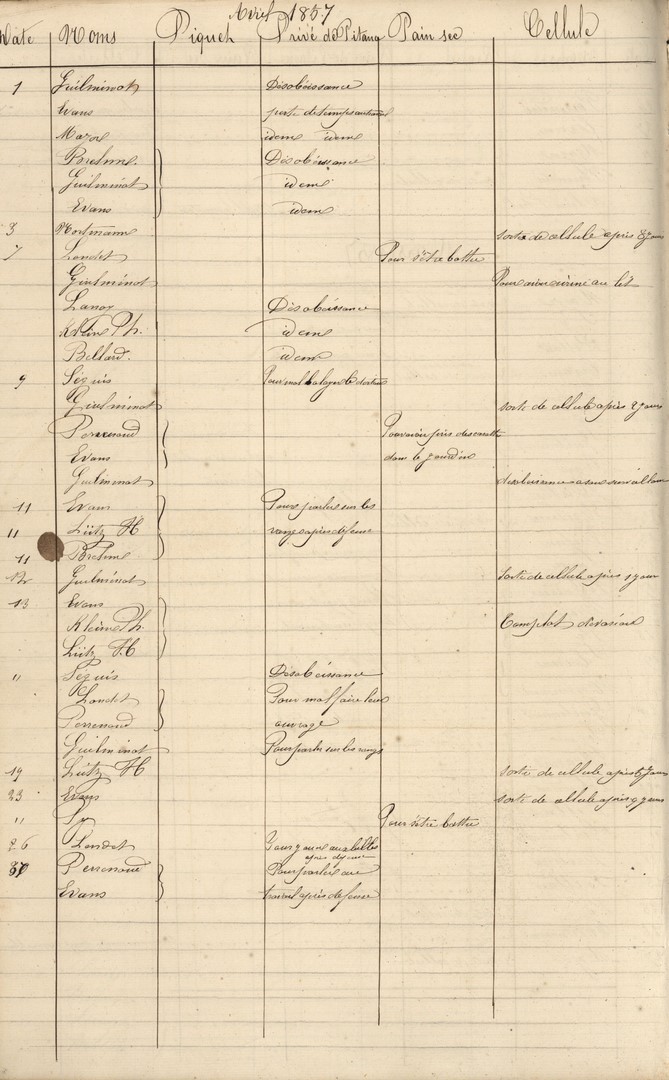 Avril 1857
Date Noms Piquet Privé de Pitance Pain sec Cellule
1 Guilminot Désobéissance
Evans perte de temps au travail
Mazos ideme ideme
Bretme. Désobéissance
Guilminot ideme
Evans ideme
3 Hortmann sortie de cellule après 8 jours
7 Londet Pour s'être battre
Guilminot Pour avoir uriné au lit
Lanoy Désobéissance
Klein Ph. ideme
Bellard. ideme
9 Séguis Pour mal balayer le dortoir
Guilminot sortie de cellule après 2 jours
Perrenoud Pour avoir pris des carotte
Evans dans le jardin
Guilminot desobéissance a son
11 Evans Pour parler sur les
11 Lütz H rangs après defense
11 Bretme
12 Guilminot Sortie de cellule après 1 jour
13 Evans
Klein Ph. Complot d'evasion
Lütz H
" Seguis Désobéissance
Londet Pour mal faire leur
Perrenoud ouvrage
Guilminot Pour parler sur les rangs
19 Lutz H sortie de cellule après 6 jours
23 Evans sortie de cellule après 9 jours
" Sy Pour s'être battre
26 Londet Pour aux billes
après defense
30 Perrenoud Pour parler au
Evans travail après defense